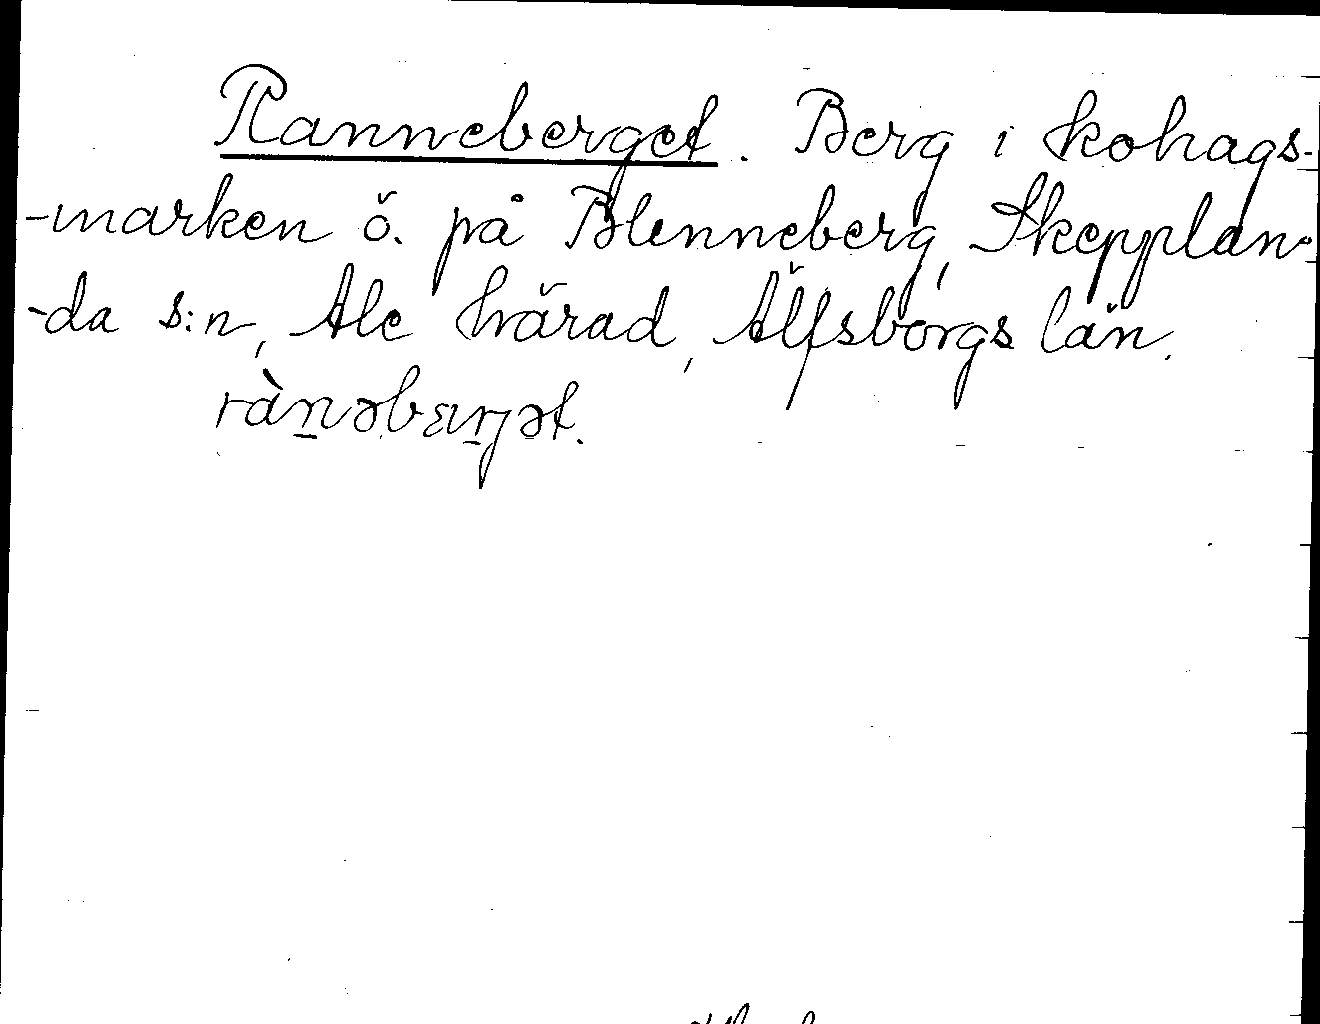 Ranneberget. Berg i kohags-
-marken ö. på Blenneberg, Skepplan-
-da s:n, Ale härad, Älfsborgs län.
ràn̲əbæn̲ɟət.